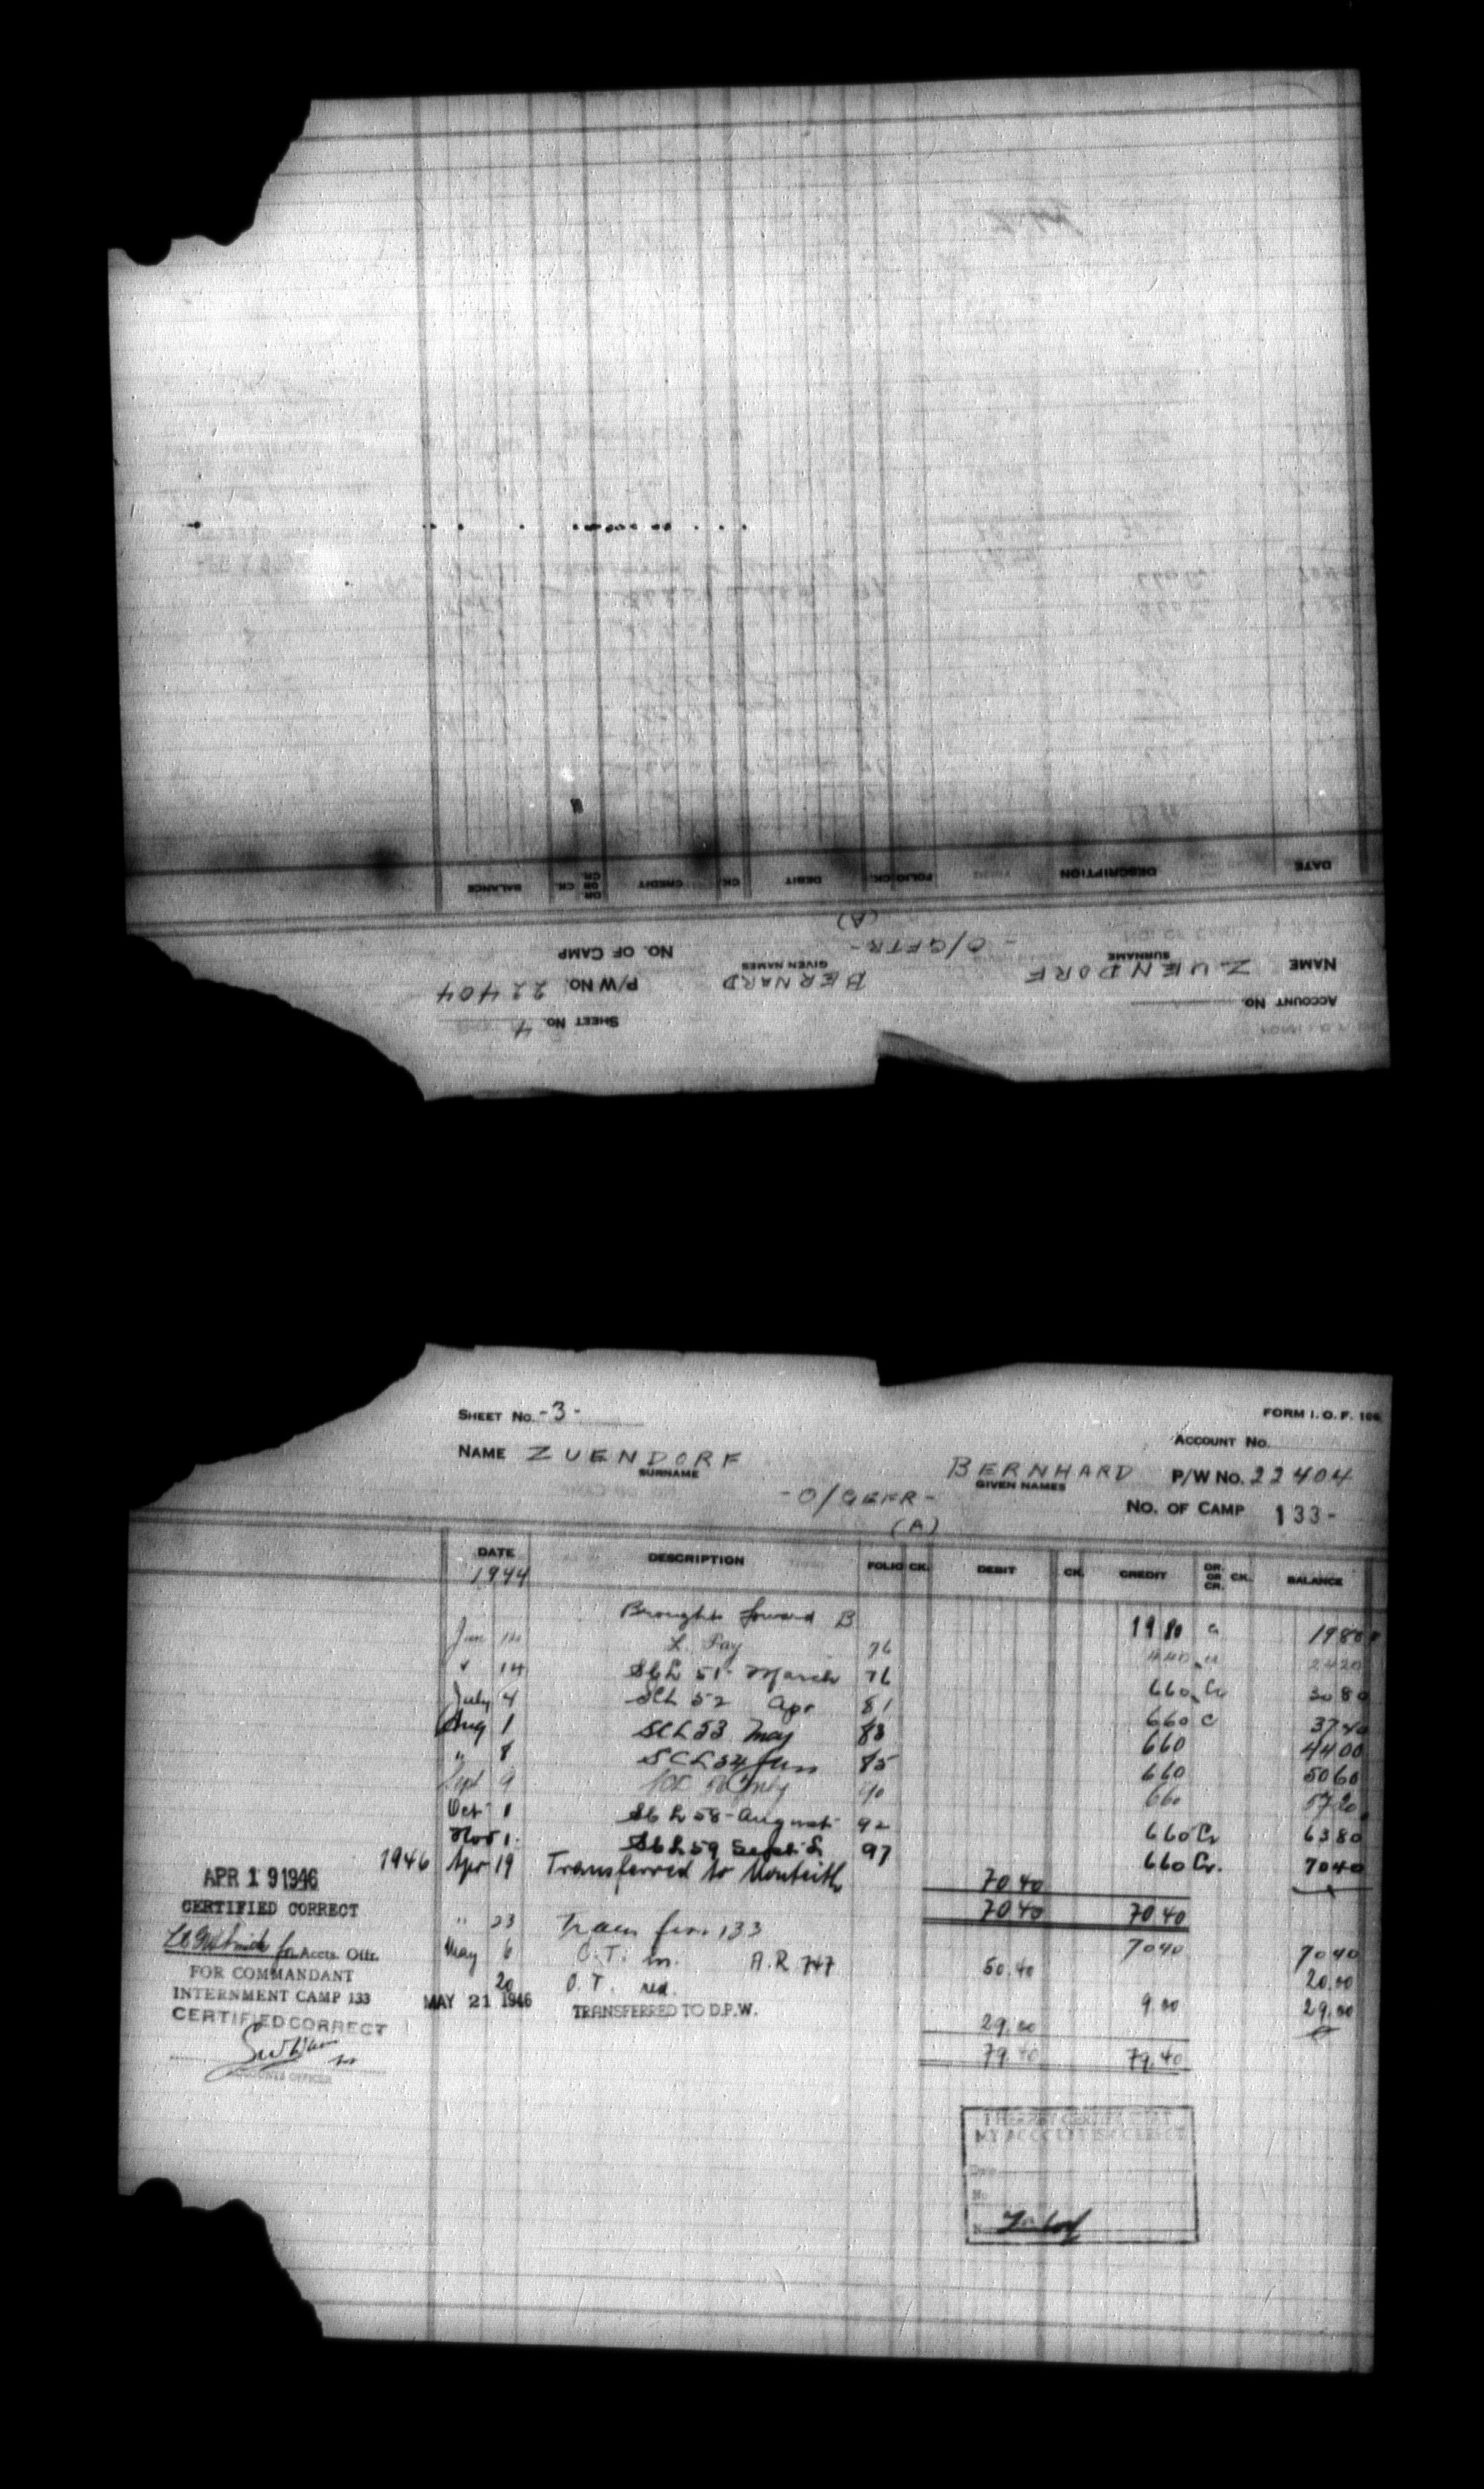 ACCOUNT No.
SHEET No. 4
NAME ZUENDORF BERNARD P/W No. 22404
SURNAME GIVEN NAMES
- O/GFTR - NO. OF CAMP
(A)
DATE DESCRIPTION FOLIO CK. DEBIT CK. CREDIT DR. OR CR. CK. BALANCE
SHEET No. -3- FORM I. O. F. 106
ACCOUNT No.
NAME ZUENDORF BERNHARD P/W No. 22404
SURNAME GIVEN NAMES
-O/GEFR- NO. OF CAMP 133-
(A)
DATE DESCRIPTION FOLIO CK. DEBIT CK. CREDIT DR. OR CR. CK. BALANCE
1944
Brought forward B 19 80 1980
L. Pay 76 440 2420
14 51 March 76 660 Cr 3080
July 4 SCL 52 Apr 81 660 C 3740
Aug 1 SCL 53 May 83 660 4400
" 8 SCL 54 85 660 5060
Sept 9 90 660 5720
Oct 1 58 August 92 660 Cr 6380
Nov 1. 59 Sept 97 660 Cr. 7040
1946 Apr 19 Transferred to Monteith 70 40
70 40 70 40
" 23 133 7040 7040
May 6 O.T. A.R. 747 50.40 20.00
20 O.T. red. 9.00 29.00
MAY 21 1946 TRANSFERRED TO D.P.W. 29.00
79.40 79.40
APR 19 1946
CERTIFIED CORRECT
for Accts. Offr.
FOR COMMANDANT
INTERNMENT CAMP 133
CERTIFIED CORRECT
ACCOUNTS OFFICER
I HEREBY CERTIFY THAT
MY ACCOUNT IS CORRECT